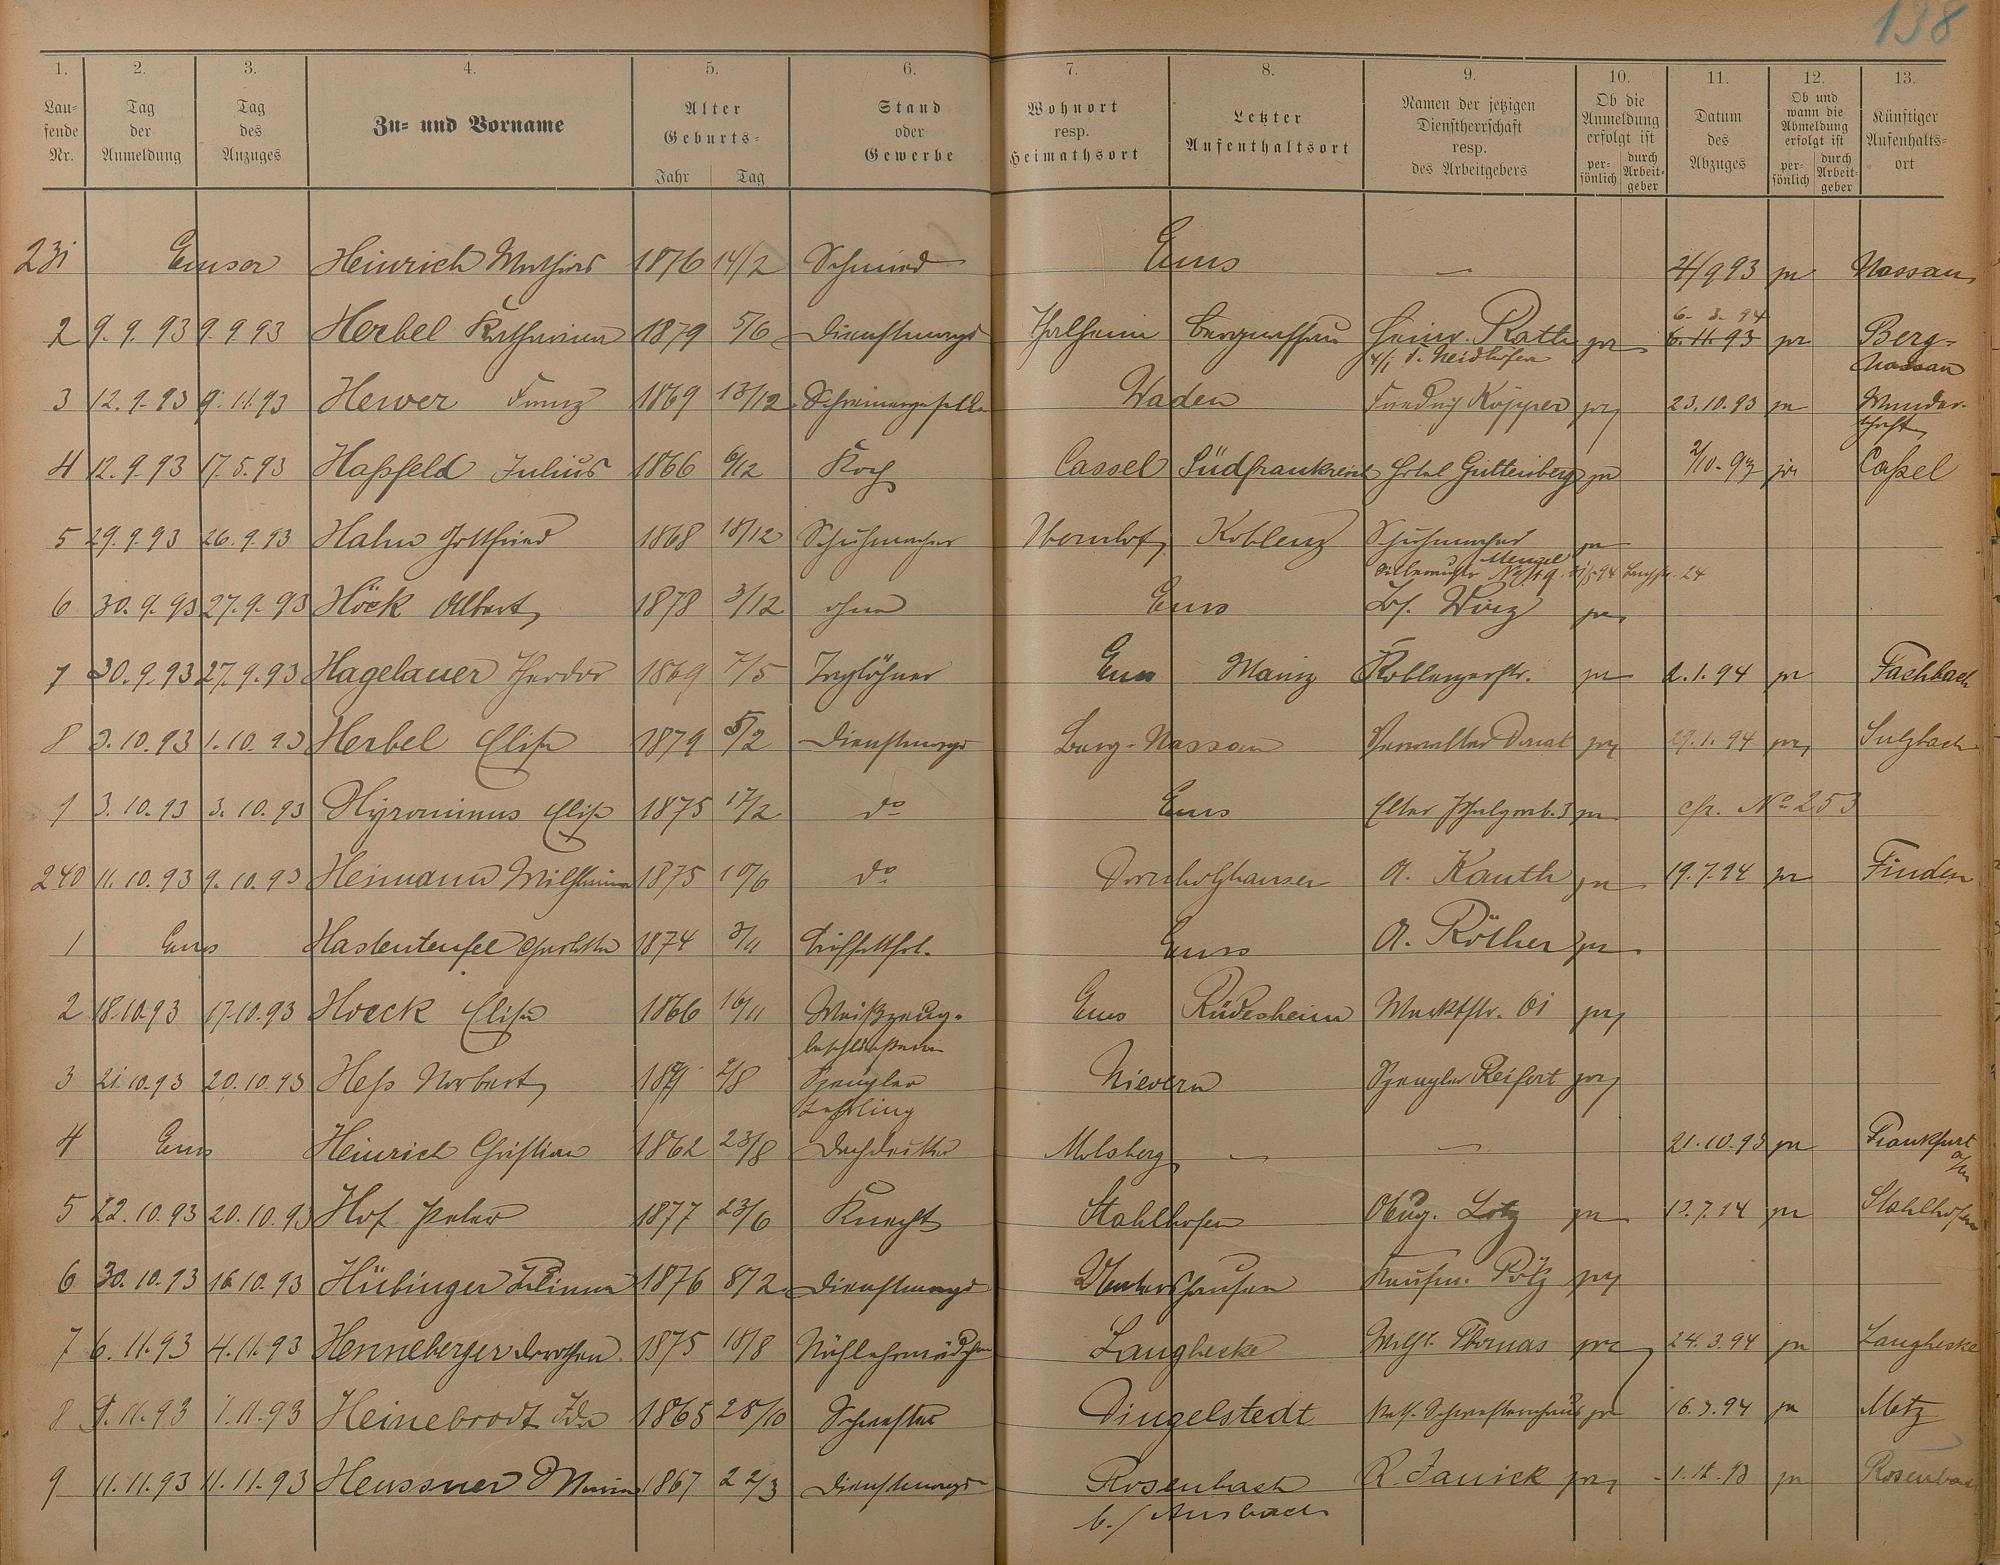 138
1. 2. 3. 4. 5. 6. 7. 8. 9. 10. 11. 12. 13.
Laufende Nr. Tag der Anmeldung Tag des Anzuges Zu- und Vorname Alter Geburts- Jahr Tag Stand oder Gewerbe Wohnort resp. Heimathsort Letzter Aufenthaltsort Namen der jetzigen Dienstherrschaft resp. des Arbeitgebers Ob die Anmeldung erfolgt ist persönlich durch Arbeitgeber Datum des Abzuges Ob und wann die Abmeldung erfolgt ist persönlich durch Arbeitgeber Künftiger Aufenthaltsort
231 Emser Heinrich Mathias 1876 14/2 Schmied Ems — 4/9 93 Nassau
6. 3. 94
2 9. 9. 93 9. 9. 93 Herbel Katharina 1879 5/6 Dienstmagd Thalheim Bergnassau Heinr. Rath 6. 11. 93 Berg-
Nassau
3 12. 9. 93 9. 11. 93 Hewer Franz 1869 13/12 Schreinergeselle Waden Friedrich Köpper 23. 10. 93 Wander-
schaft
4 12. 9. 93 17. 5. 93 Haßfeld Julius 1866 6/12 Koch Cassel Südfrankreich Hotel Guttenberg 2/10. 93 Caßel
5 29. 9. 93 26. 9. 93 Hahn Gottfried 1868 18/12 Schuhmacher Koblenz Schuhmacher
Menzel
6 30. 9. 93 27. 9. 93 Höck Albert 1878 3/12 ohne Ems Wirz
7 30. 9. 93 27. 9. 93 Hagelauer Theodor 1869 7/5 Taglöhner Ems Mainz Koblenzerstr. 2. 1. 94 Fachbach
8 3. 10. 93 1. 10. 93 Herbel Elise 1879 5/2 Dienstmagd Berg-Nassau Verwalter 29. 1. 94 Sulzbach
9 3. 10. 93 3. 10. 93 Hyronimus Elise 1875 17/2 do Ems cfr. No 253
240 11. 10. 93 9. 10. 93 Heimann Wilhelmine 1875 10/6 do Dornholzhausen A. Kauth 19. 7. 94 Finden
1 Ems Hastenteufel Charlotte 1874 3/11 Ems A. Röther
2 18. 10. 93 17. 10. 93 Hoeck Elise 1866 16/11 Weißzeug- Ems Rüdesheim Marktstr. 61
beschließerin
3 21. 10. 93 20. 10. 93 Heß Norbert 2/8 Spengler Nievern Spengler Reifert
Lehrling
4 Ems Heinrich Christian 1862 23/8 Dachdecker Molsberg — — 21. 10. 93 Frankfurt
a/M
5 22. 10. 93 20. 10. 93 Hof Peter 1877 23/6 Knecht Stahlhofen Aug. Lotz 12. 7. 94 Stahlhofen
6 30. 10. 93 16. 10. 93 Hübinger 1876 8/2. Dienstmagd Kaufm. Pötz
7 6. 11. 93 4. 11. 93 Henneberger Dorothea 1875 18/8 Nählehrmädchen Langhecke Wilh. Thomas 24. 3. 94 Langhecke
8 8. 11. 93 1. 11. 93 Heinebrodt Ida 1865 25/10 Schwester Dingelstedt Kath. Schwesternhaus 16. 3. 94 Metz
9 11. 11. 93 11. 11. 93 Heussner Maria 1867 22/3 Dienstmagd Rosenbach R. Janick Rosenbach
b./ Ansbach